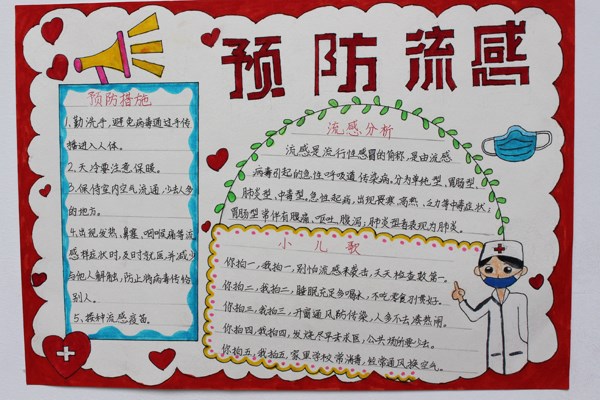 预防流感
预防措施
1、勤洗手,避免病毒通过手传
播进入人体。
2、天冷要注意保暖。
3、保持室内空气流通,少去人多
的地方。
4、出现发热、鼻塞、咽喉痛等流
感样症状时,及时就医并减少
与他人解触,防止将病毒传给
别人。
5、接种流感疫苗。
流感分析
流感是流行性感冒的简称,是由流感
病毒引起的急性呼吸道传染病。分为单纯型、胃肠型、
肺炎型、中毒型。急性起病,出现畏寒、高热、乏力等中毒症状;
胃肠型常伴有腹痛、呕吐、腹泻;肺炎型者表现为肺炎。
小儿歌
你拍一,我拍一,别怕流感来袭击,天天检查数第一。
你拍二,我拍二,睡眠充足多喝水,不吃零食别贪好。
你拍三,我拍三,开窗通风防传染,人多不去凑热闹。
你拍四,我拍四,发烧尽早去求医,公共场所要少去。
你拍五,我拍五,家里学校常消毒,经常通风换空气。